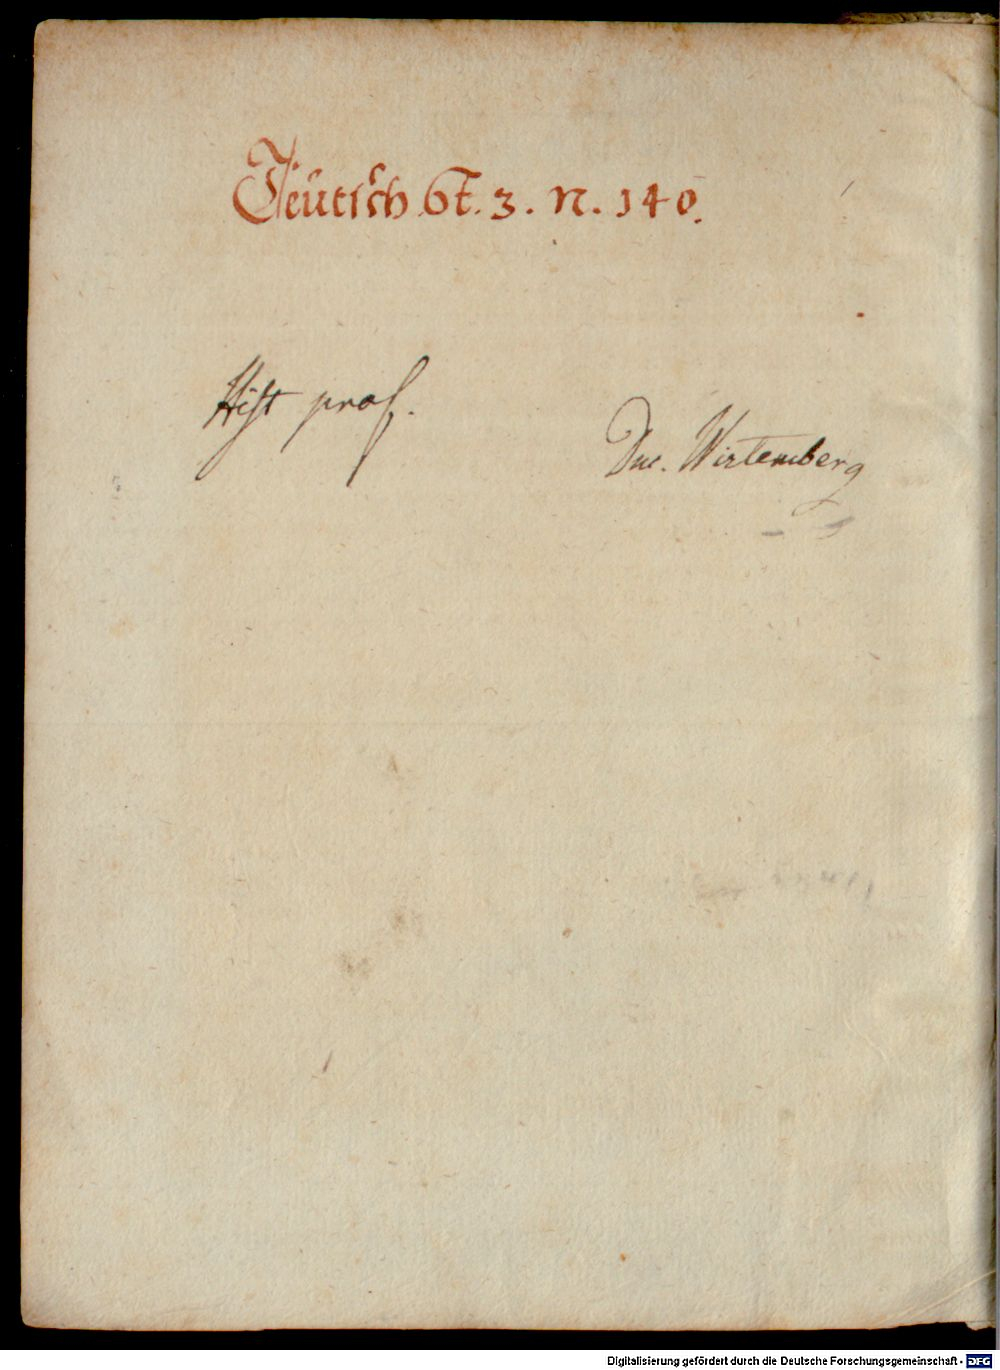 Teütsch. St. 3. N. 140.
Hist prof.
Duc. Wirtemberg
Digitalisierung gefördert durch die Deutsche Forschungsgemeinschaft - DFG